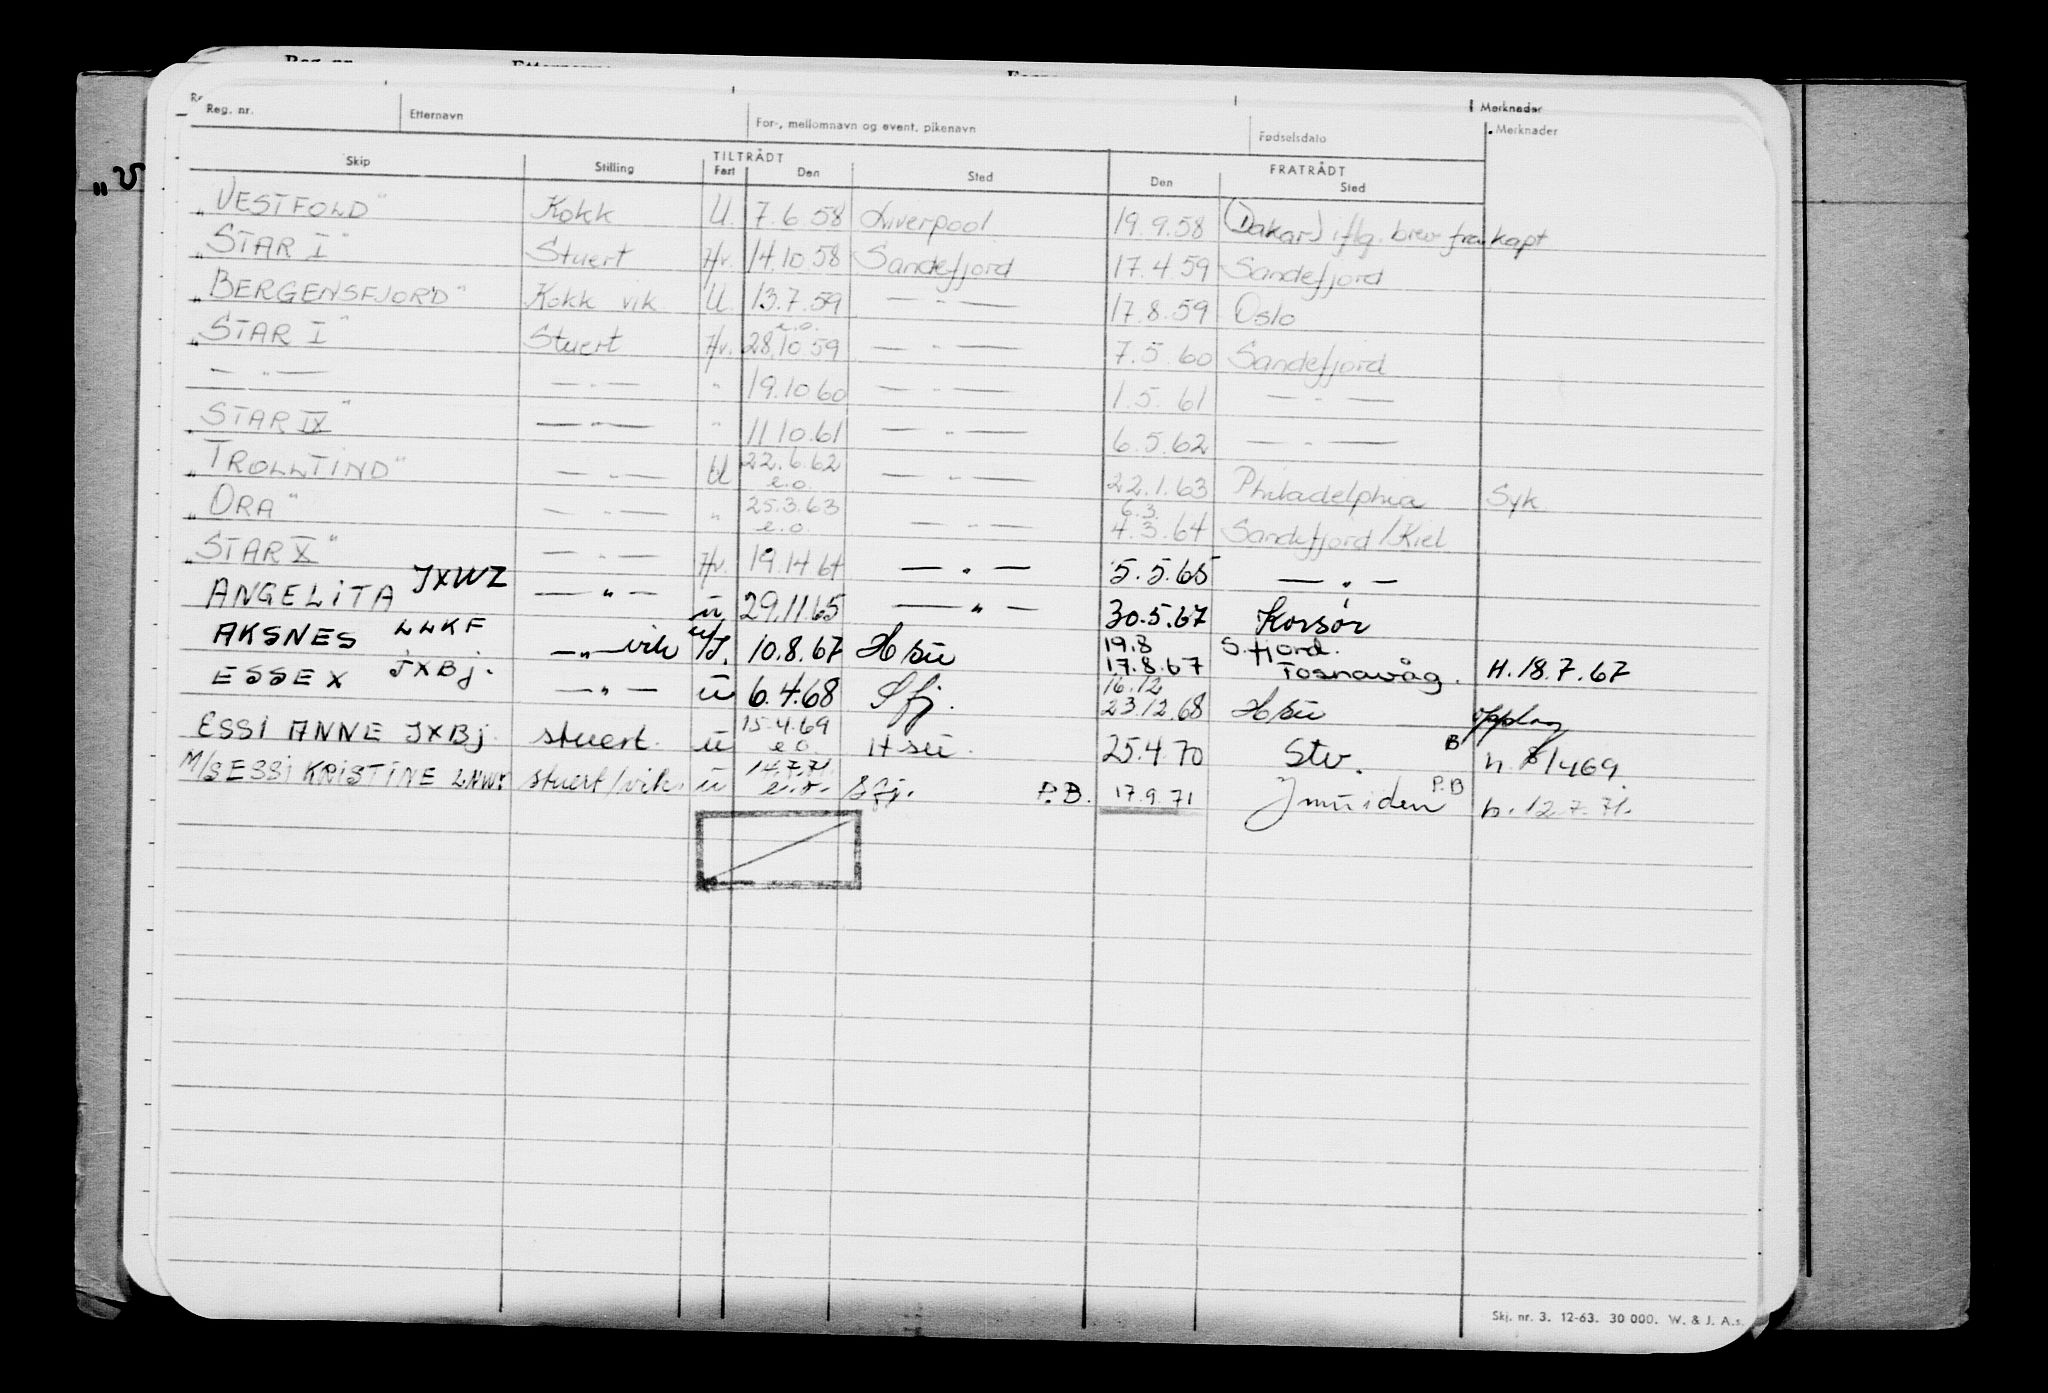 Reg. nr. Etternavn For-, mellomnavn og event. pikenavn Fødselsdato Merknader
Merknader
Skip Stilling TILTRÅDT Fart Den Sted FRATRÅDT Den Sted
„VESTFOLD" Kokk U. 7.6.58 Liverpool 19.9.58 (Dakar) iflg. brev fra kapt
„STAR I" Stuert Hv. 14.10.58 Sandefjord 17.4.59 Sandefjord
„BERGENSFJORD" Kokk vik U. 13.7.59 — „ — 17.8.59 Oslo
e.o.
„STAR I" Stuert Hv. 28.10.59 — „ — 7.5.60 Sandefjord
— „ — — „ — „ 19.10.60 — „ — 1.5.61 — „ —
„STAR IX" — „ — „ 11.10.61 — „ — 6.5.62 — „ —
„TROLLTIND" — „ — U 22.6.62 e.o. — „ — 22.1.63 Philadelphia Syk
„ORA" — „ — „ 25.3.63 e.o. — „ — 6.3. 4.3.64 Sandefjord/Kiel
„STAR X" — „ — Hv. 19.14 64 — „ — 5.5.65 — „ —
ANGELITA JXWZ — „ — u 29.11.65 — „ — 30.5.67 Korsør
AKSNES LLKF — „ — vik u/I. 10.8.67 Hsu 19.8 17.8.67 S.fjord. Fosnavåg. H. 18.7.67
ESSEX JXBj. — „ — u 6.4.68 Sfj. 16.12 23.12.68 Hsu opplag
ESSI ANNE JXBj. stuert. u 15.4.69 e.o. Hsu. 25.4.70 Stv. B h. 8/469
M/S ESSI KRISTINE stuert/vik. u 14.7.71. e.o. Sfj. P.B. 17.9.71 Jmuiden P.B h. 12.7.71.
Skj. nr. 3. 12-63. 30 000. W. & J. A.s.